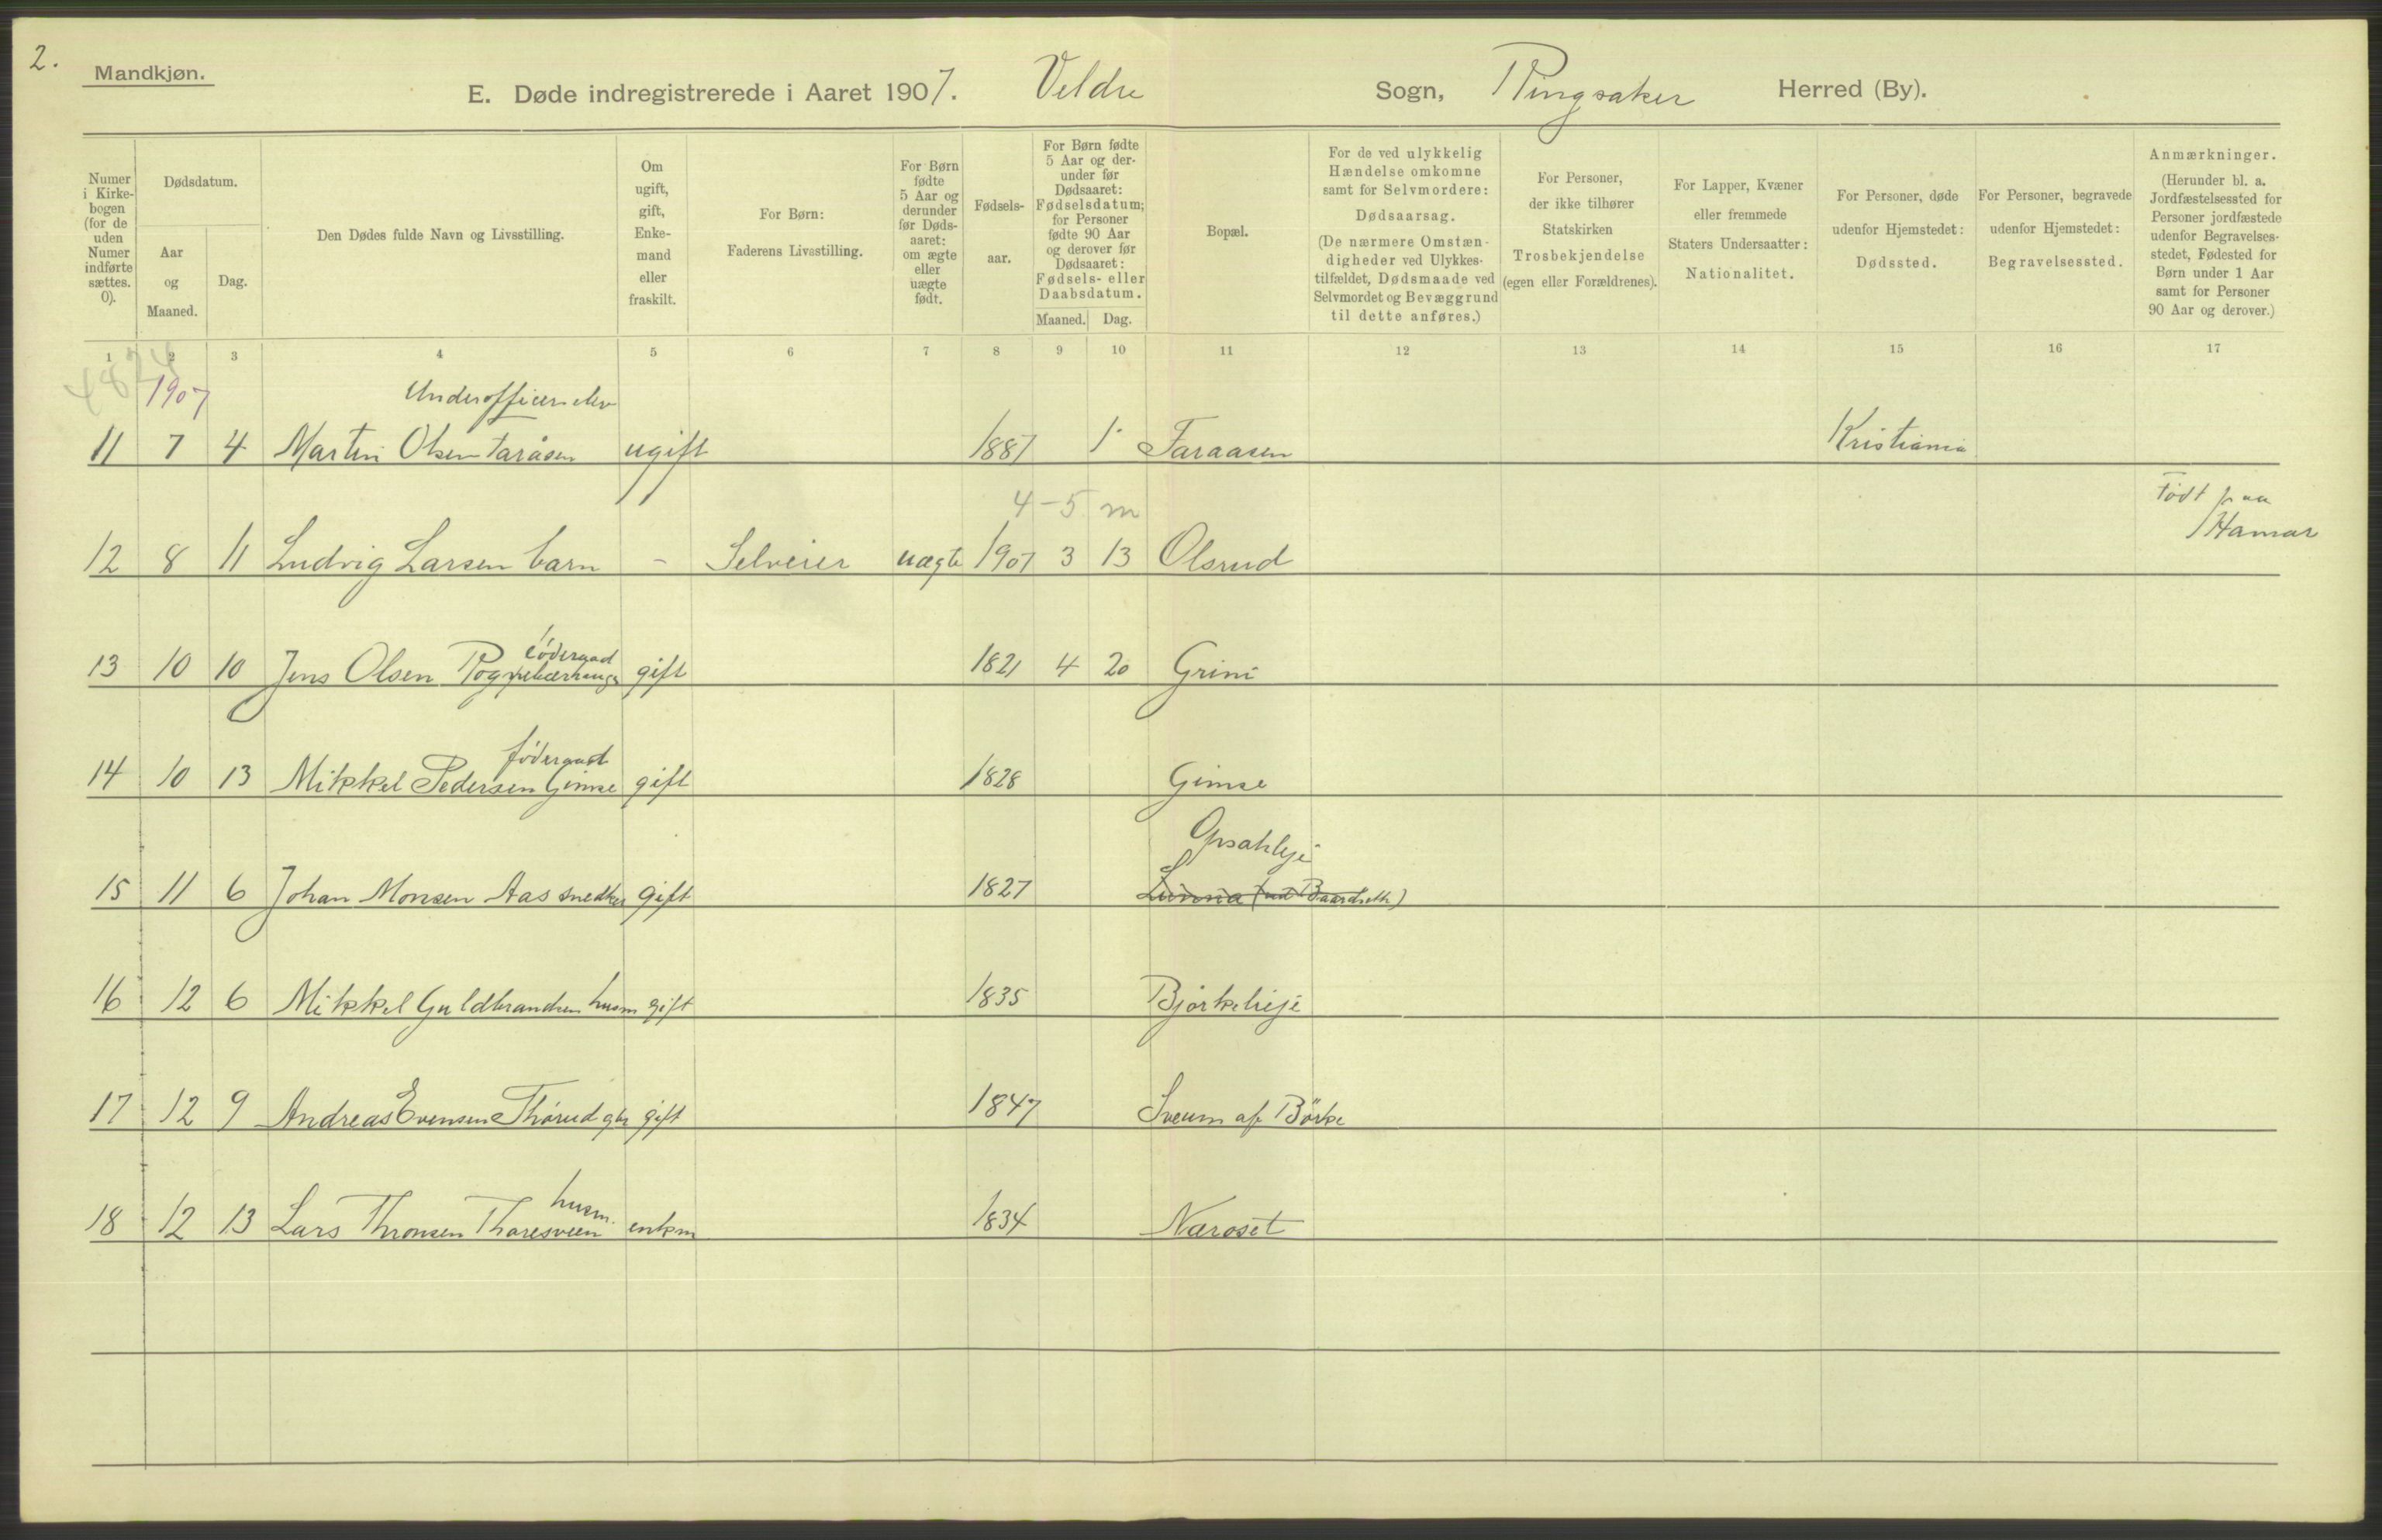 2.
Mandkjøn.
E. Døde indregistrerede i Aaret 1907. Veldre Sogn, Ringsaker Herred (By).
Numer i Kirkebogen (for de uden Numer indførte sættes. 0).
Dødsdatum.
Aar og Maaned.
Dag.
Den Dødes fulde Navn og Livsstilling.
Om ugift, gift, Enkemand eller fraskilt.
For Børn: Faderens Livsstilling.
For Børn fødte 5 Aar og derunder før Dødsaaret: om ægte eller uægte født.
Fødselsaar.
For Børn fødte 5 Aar og derunder før Dødsaaret: Fødselsdatum; for Personer fødte 90 Aar og derover før Dødsaaret: Fødsels- eller Daabsdatum.
Maaned. Dag.
Bopæl.
For de ved ulykkelig Hændelse omkomne samt for Selvmordere: Dødsaarsag. (De nærmere Omstændigheder ved Ulykkestilfældet, Dødsmaade ved Selvmordet og Bevæggrund til dette anføres.)
For Personer, der ikke tilhører Statskirken Trosbekjendelse (egen eller Forældrenes).
For Lapper, Kvæner eller fremmede Staters Undersaatter: Nationalitet.
For Personer, døde udenfor Hjemstedet: Dødssted.
For Personer, begravede udenfor Hjemstedet: Begravelsessted.
Anmærkninger. (Herunder bl. a. Jordfæstelsessted for Personer jordfæstede udenfor Begravelsesstedet, Fødested for Børn under 1 Aar samt for Personer 90 Aar og derover.)
1 2 3 4 5 6 7 8 9 10 11 12 13 14 15 16 17
1907
Underofficerselev
11 7 4 Martin Olsen Taråsen ugift 1887 1 Taraasen Kristiania
4-5 m
født paa
Hamar
12 8 11 Ludvig Larsen barn - Selveier uægte 1907 3 13 Olsrud
føderaad
13 10 10 Jens Olsen gift 1821 4 20 Grini
føderaad
14 10 13 Mikkel Pedersen Gimse gift 1828 Gimse
Opsahleje
15 11 6 Johan Monsen Aas snedker gift 1827
16 12 6 Mikkel Guldbrandsen husm gift 1835 Bjørkelieje
17 12 9 Andreas Evensen Thørud gbr gift 1847 Sveum af Börke
husm.
18 12 13 Lars Thronsen Thoresveen enkm 1834 Næroset